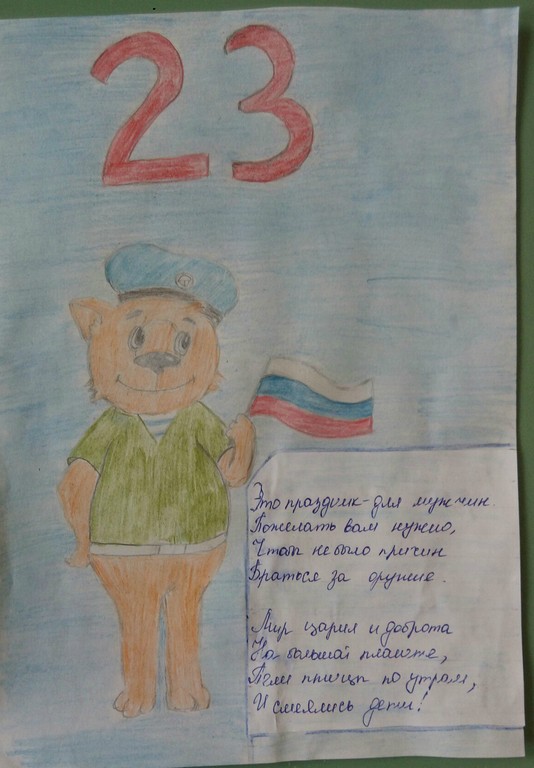 23
Это праздник - для мужчин.
Пожелать вам нужно,
Чтоб не было причин
Браться за оружие.
Мир царил и доброта
На большой планете,
Пели птицы по утрам,
И смеялись дети!